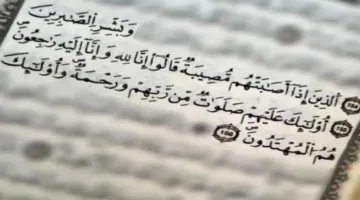 وَبَشِّرِ ٱلصَّٰبِرِينَ
١٥٥ ٱلَّذِينَ إِذَآ أَصَٰبَتۡهُم مُّصِيبَةٞ قَالُوٓاْ إِنَّا لِلَّهِ وَإِنَّآ إِلَيۡهِ رَٰجِعُونَ
١٥٦ أُوْلَٰٓئِكَ عَلَيۡهِمۡ صَلَوَٰتٞ مِّن رَّبِّهِمۡ وَرَحۡمَةٞۖ وَأُوْلَٰٓئِكَ
هُمُ ٱلۡمُهۡتَدُونَ ١٥٧